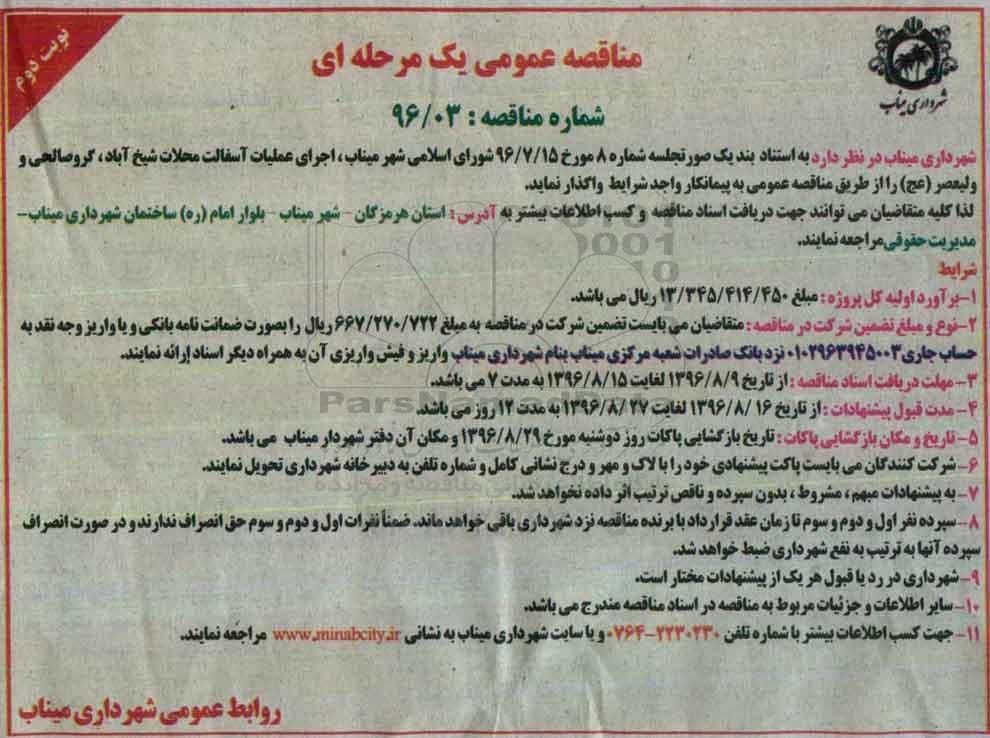 نوبت دوم
شهرداری میناب
مناقصه عمومی یک مرحله ای
شماره مناقصه : ۹۶/۰۳
شهرداری میناب در نظر دارد به استناد بند یک صورتجلسه شماره ۸ مورخ ۹۶/۷/۱۵ شورای اسلامی شهر میناب ، اجرای عملیات آسفالت محلات شیخ آباد ، گروصالحی و
ولیعصر (عج) را از طریق مناقصه عمومی به پیمانکار واجد شرایط واگذار نماید.
لذا کلیه متقاضیان می توانند جهت دریافت اسناد مناقصه و کسب اطلاعات بیشتر به آدرس : استان هرمزگان - شهر میناب - بلوار امام (ره) ساختمان شهرداری میناب-
مدیریت حقوقی مراجعه نمایند.
شرایط
۱-برآورد اولیه کل پروژه : مبلغ ۱۳/۳۴۵/۴۱۴/۴۵۰ ریال می باشد.
۲-نوع و مبلغ تضمین شرکت در مناقصه : متقاضیان می بایست تضمین شرکت در مناقصه به مبلغ ۶۶۷/۲۷۰/۷۲۲ ریال را بصورت ضمانت نامه بانکی و یا واریز وجه نقد به
حساب جاری ۰۱۰۲۹۶۳۹۴۵۰۰۳ نزد بانک صادرات شعبه مرکزی میناب بنام شهرداری میناب واریز و فیش واریزی آن به همراه دیگر اسناد إرائه نمایند.
۳- مهلت دریافت اسناد مناقصه : از تاریخ ۱۳۹۶/۸/۹ لغایت ۱۳۹۶/۸/۱۵ به مدت ۷ می باشد.
۴- مدت قبول پیشنهادات : از تاریخ ۱۶ /۱۳۹۶/۸ لغایت ۲۷ /۱۳۹۶/۸ به مدت ۱۲ روز می باشد.
۵- تاریخ و مکان بازگشایی پاکات : تاریخ بازگشایی پاکات روز دوشنبه مورخ ۱۳۹۶/۸/۲۹ و مکان آن دفتر شهردار میناب می باشد.
۶- شرکت کنندگان می بایست پاکت پیشنهادی خود را با لاک و مهر و درج نشانی کامل و شماره تلفن به دبیرخانه شهرداری تحویل نمایند.
۷- به پیشنهادات مبهم ، مشروط ، بدون سپرده و ناقص ترتیب اثر داده نخواهد شد.
۸- سپرده نفر اول و دوم و سوم تا زمان عقد قرارداد با برنده مناقصه نزد شهرداری باقی خواهد ماند. ضمناً نفرات اول و دوم و سوم حق انصراف ندارند و در صورت انصراف
سپرده آنها به ترتیب به نفع شهرداری ضبط خواهد شد.
۹- شهرداری در رد یا قبول هر یک از پیشنهادات مختار است.
۱۰- سایر اطلاعات و جزئیات مربوط به مناقصه در اسناد مناقصه مندرج می باشد.
۱۱- جهت کسب اطلاعات بیشتر با شماره تلفن ۲۲۳۰۲۳۰-۰۷۶۴ و یا سایت شهرداری میناب به نشانی www.minabcity.ir مراجعه نمایند.
روابط عمومی شهرداری میناب
ParsNamadData